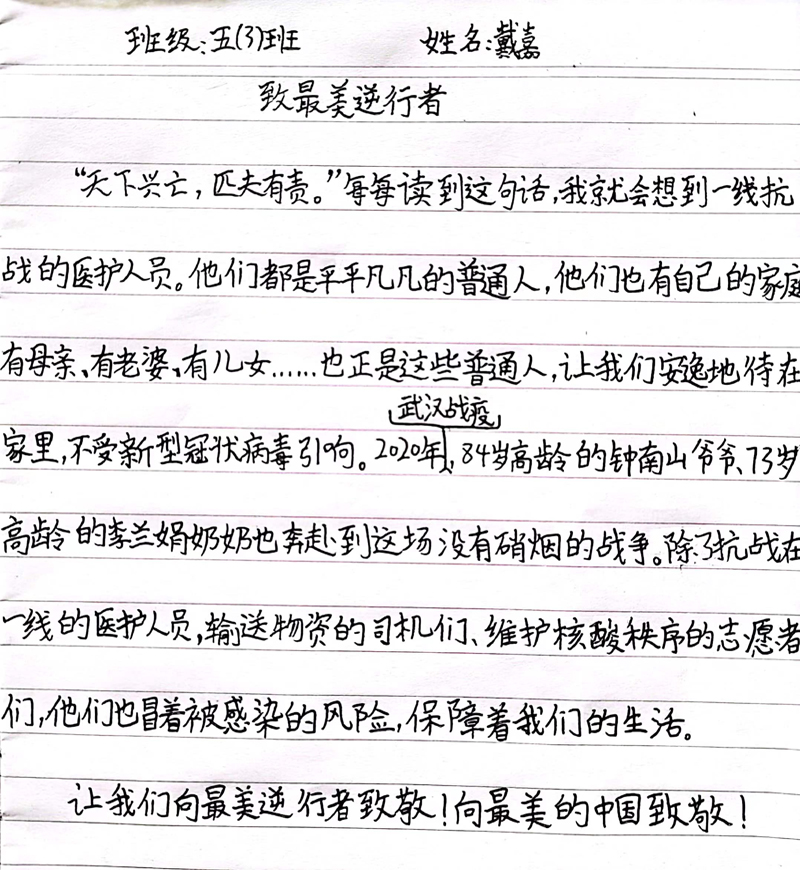 班级:五(3)班 姓名:戴嘉
致最美逆行者
“天下兴亡,匹夫有责。”每每读到这句话,我就会想到一线抗
战的医护人员。他们都是平平凡凡的普通人,他们也有自己的家庭
有母亲、有老婆、有儿女……也正是这些普通人,让我们安逸地待在
武汉战疫
家里,不受新型冠状病毒引响。2020年,84岁高龄的钟南山爷爷、73岁
高龄的李兰娟奶奶也奔赴到这场没有硝烟的战争。除了抗战在
一线的医护人员,输送物资的司机们、维护核酸秩序的志愿者
们,他们也冒着被感染的风险,保障着我们的生活。
让我们向最美逆行者致敬!向最美的中国致敬!